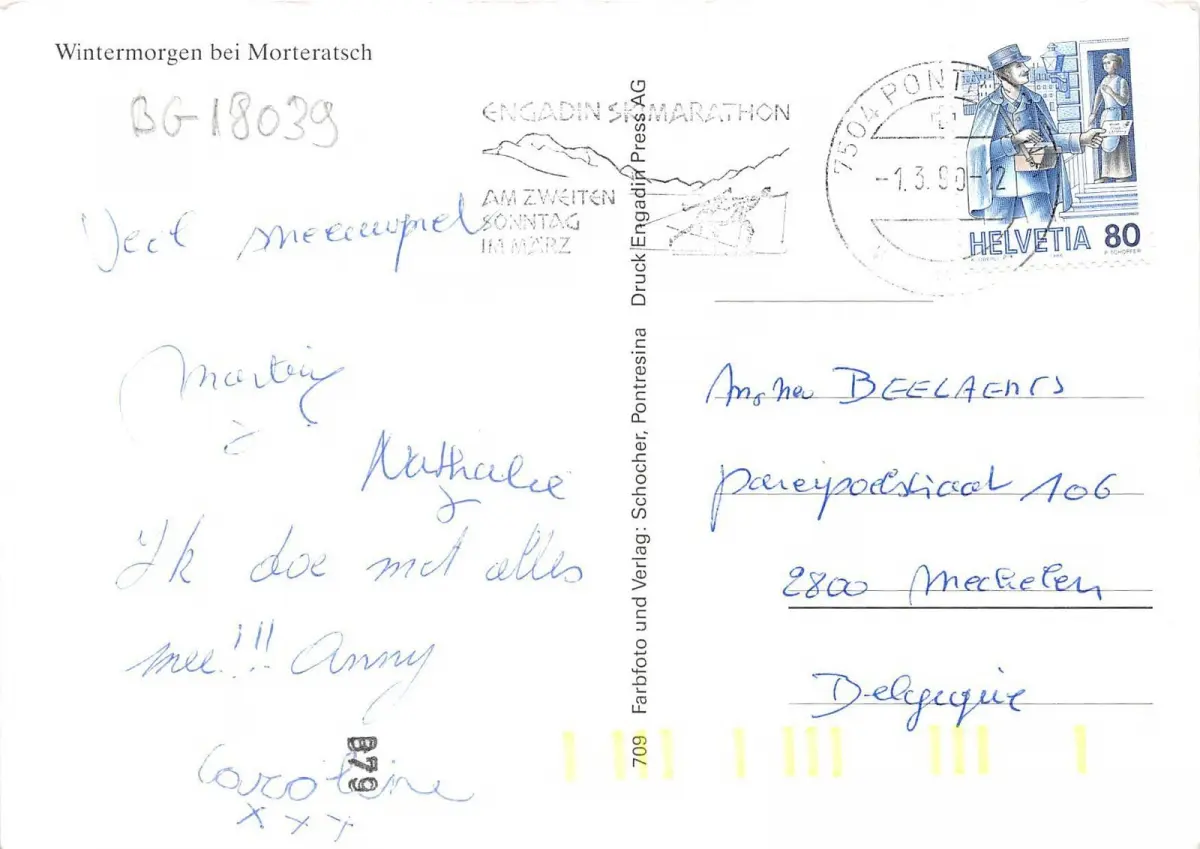 Wintermorgen bei Morteratsch
BG-18039
ENGADIN SKIMARATHON
AM ZWEITEN
SONNTAG
IM MÄRZ
7504 PONT
-1.3.90-12
HELVETIA 80
Veel sneeuwpret
Martin
&
Nathalie
Ik doe met alles
mee!!! Anny
Caroline
x x x
B79
709 Farbfoto und Verlag: Schocher, Pontresina Druck Engadin Press AG
BEELAERTS
106
2800 Mechelen
Belgique